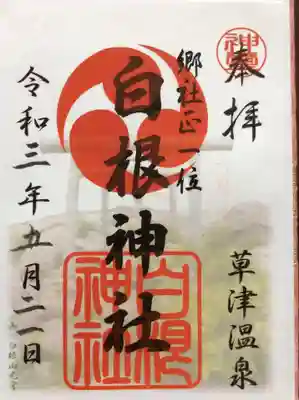 奉拝
郷社正一位
白根神社
草津温泉
令和三年五月二一日
白根神社